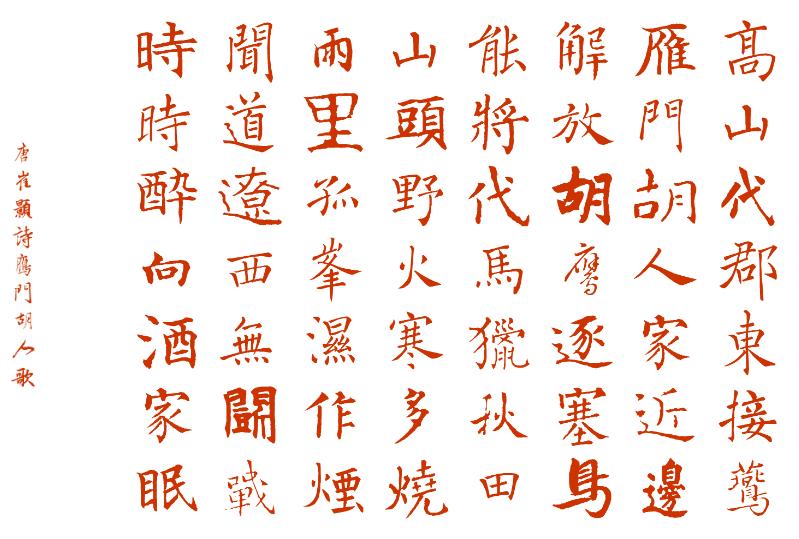 高山代郡東接鷰
雁門胡人家近邊
解放胡鷹逐塞鳥
能將代馬獵秋田
山頭野火寒多燒
雨里孤峯濕作煙
聞道遼西無鬪戰
時時醉向酒家眠
唐崔顥詩鴈門胡人歌